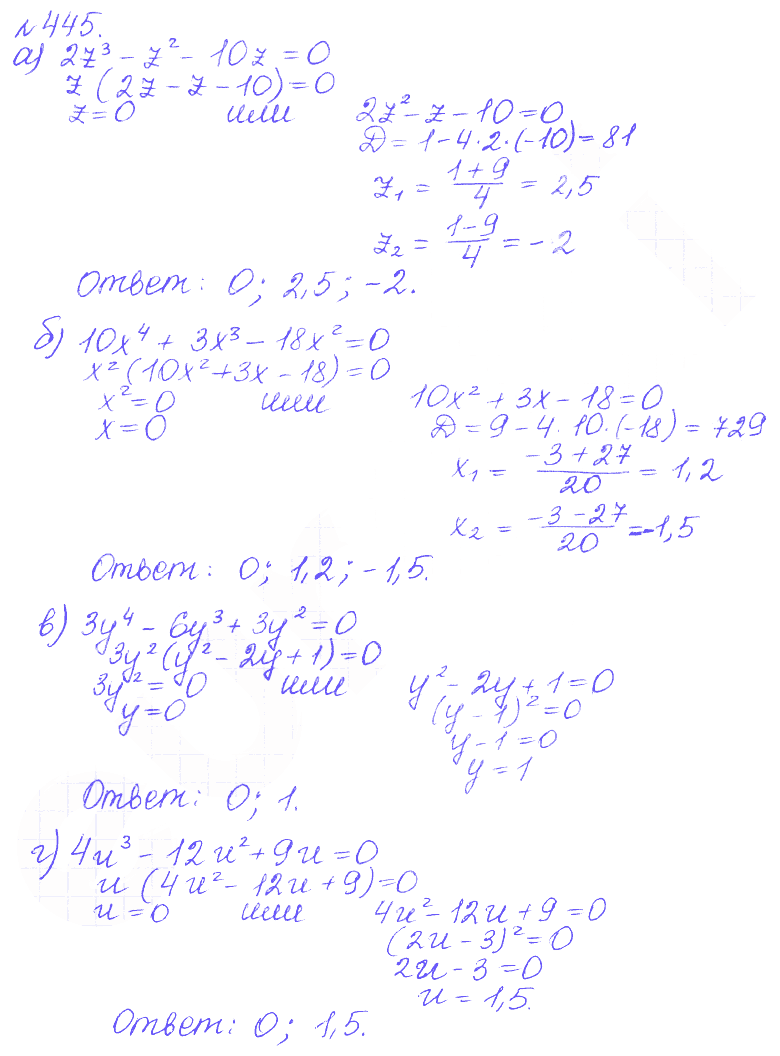 №445.
а) 2z³ - z² - 10z = 0
z (2z - z - 10) = 0
z = 0 или 2z² - z - 10 = 0
Д = 1 - 4·2·(-10) = 81
z₁ = (1+9)/4 = 2,5
z₂ = (1-9)/4 = -2
Ответ: 0; 2,5; -2.
б) 10x⁴ + 3x³ - 18x² = 0
x² (10x² + 3x - 18) = 0
x² = 0 или 10x² + 3x - 18 = 0
x = 0 Д = 9 - 4·10·(-18) = 729
x₁ = (-3+27)/20 = 1,2
x₂ = (-3-27)/20 = -1,5
Ответ: 0; 1,2; -1,5.
в) 3y⁴ - 6y³ + 3y² = 0
3y² (y² - 2y + 1) = 0
3y² = 0 или y² - 2y + 1 = 0
y = 0 (y - 1)² = 0
y - 1 = 0
y = 1
Ответ: 0; 1.
г) 4u³ - 12u² + 9u = 0
u (4u² - 12u + 9) = 0
u = 0 или 4u² - 12u + 9 = 0
(2u - 3)² = 0
2u - 3 = 0
u = 1,5.
Ответ: 0; 1,5.